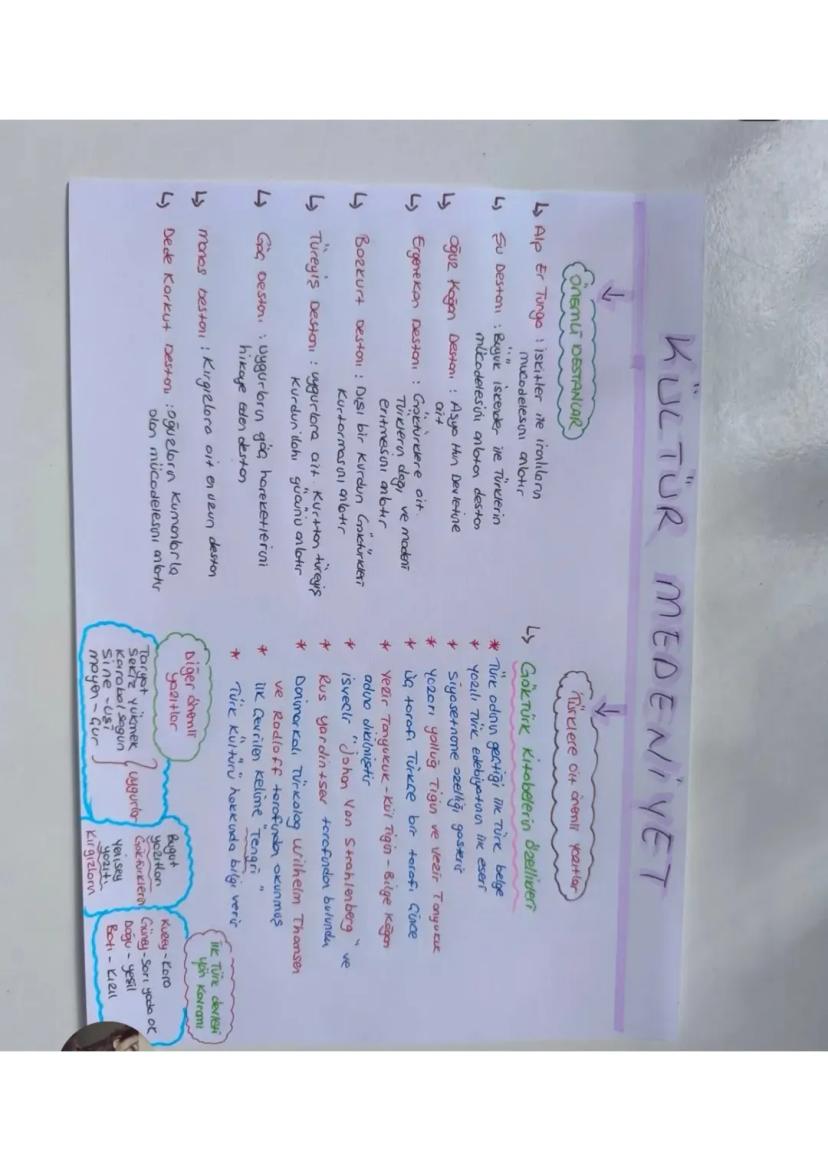 KÜLTÜR MEDENİYET
ÖNEMLİ DESTANLAR
↳ Alp Er Tunga : iskitler ile iranlıların
mücadelesini anlatır
↳ Şu Destanı : Büyük iskender ile Türklerin
mücadelesini anlatan destan
↳ Oğuz Kağan Destanı : Asya Hun Devletine
ait
↳ Ergenekon Destanı : Göktürklere ait.
Türklerin dağı ve madeni
eritmesini anlatır
↳ Bozkurt Destanı : Dişi bir kurdun Göktürkleri
Kurtarmasını anlatır
↳ Türeyiş Destanı : uygurlara ait. Kurttan türeyiş
Kurdun ilahi gücünü anlatır
↳ Göç Destanı : uygurların göç hareketlerini
hikaye eden destan
↳ manas Destanı : Kırgızlara ait en uzun destan
↳ Dede Korkut Destanı : oğuzların Kumanlarla
olan mücadelesini anlatır
Türklere ait önemli yazıtlar
↳ Göktürk Kitabelerin özellikleri
* Türk adının geçtiği ilk Türk belge
* Yazılı Türk edebiyatının ilk eseri
* Siyasetname özelliği gösterir
* Yazarı yolluğ Tigin ve vezir Tonyukuk
* üç tarafı Türkçe bir tarafı Çince
* vezir Tonyukuk - Kül Tigin - Bilge Kağan
adına dikilmiştir
* isveçli "Johan Von Strahlenberg" ve
* Rus yardintser tarafından bulundu
* Danimarkalı Türkolog Wilhelm Thomsen
ve Radloff tarafından okunmuş
* ilk çevrilen kelime "Tengri"
* Türk Kültürü hakkında bilgi verir
Diğer önemli
yazıtlar
Taryat
Sekiz Yükmek
Karabalsagun
Sine-Uşi
moyen-Çur
uygurlar
Bugut
yazıtları
Göktürklerin
Yenisey
yazıtı
Kırgızların
ilk Türk devleti
yön Kavramı
Kuzey - Kara
Güney - Sarı yada ak
Doğu - yeşil
Batı - Kızıl